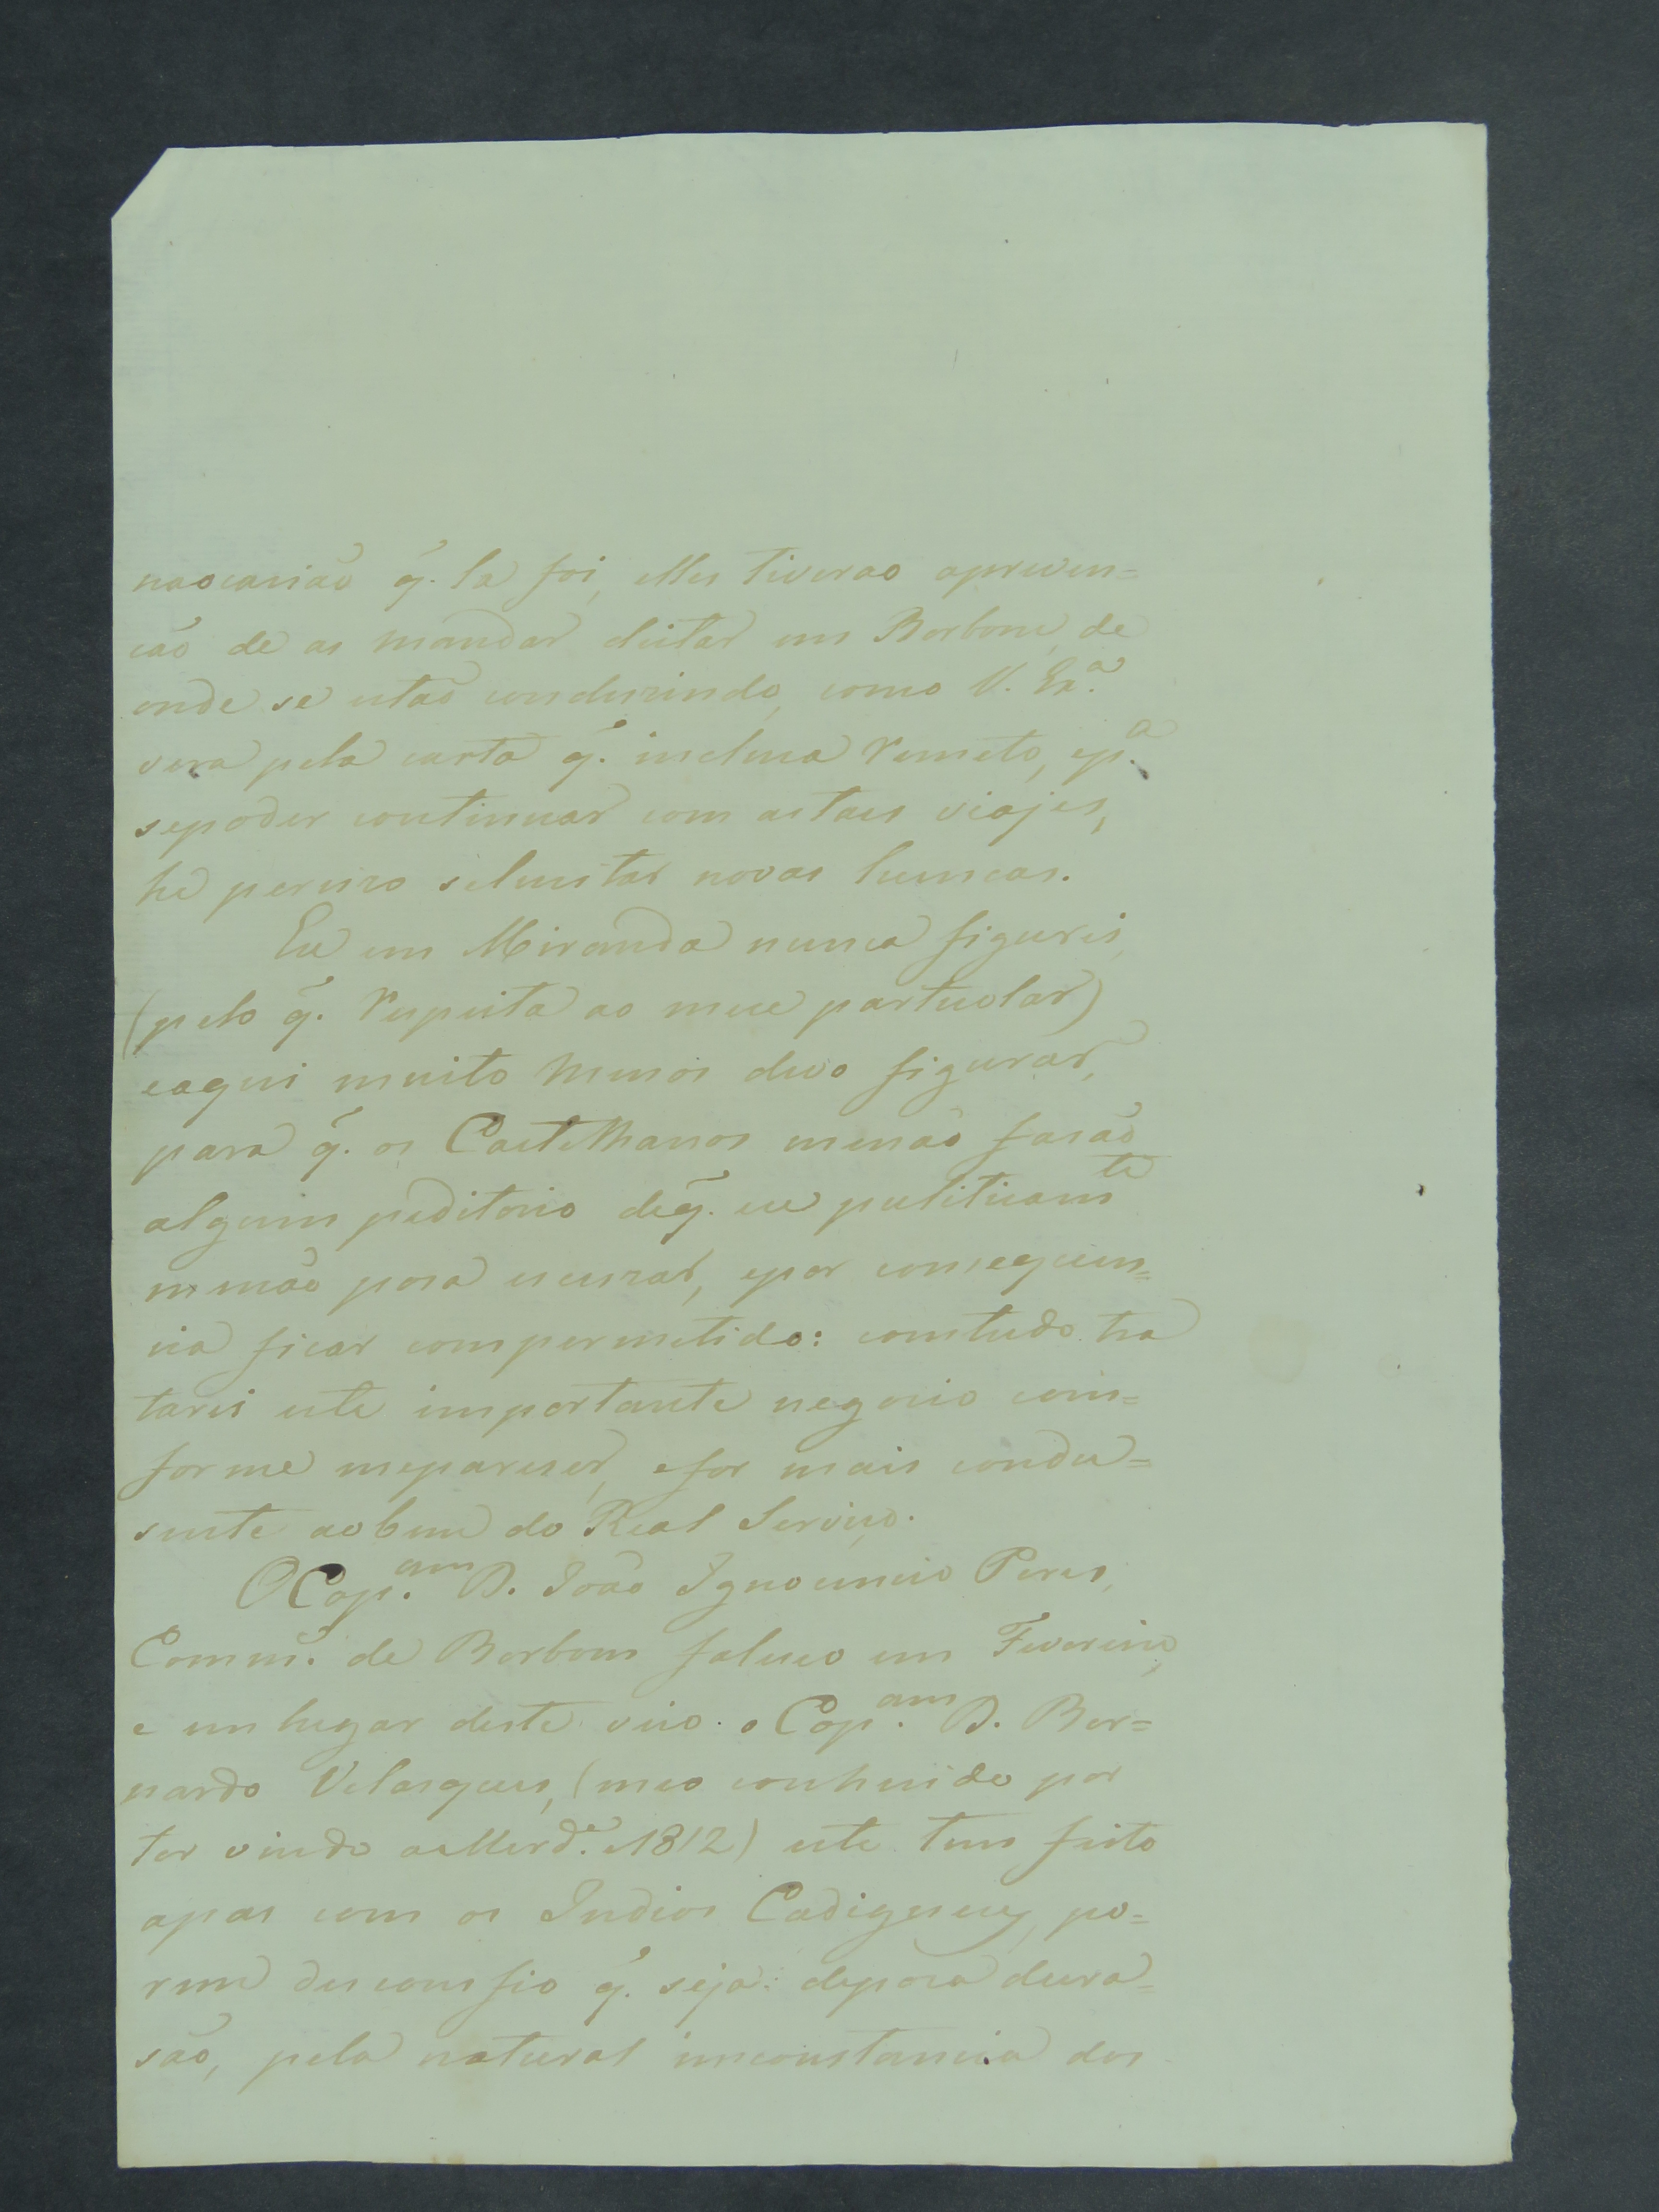 naocasiaõ q̃. la foi, elles tiveraõ apreven=
caõ de as mandar deitar em Borbom, de
onde se estaõ condusindo, como V. Ex.ª
vera pela carta q̃. inclusa remeto, ep.ª
sepoder continuar com astaes viajes,
he perciso selecitar novas licencas.
Eu em Miranda nunca figurei,
(pelo q̃. respeita ao meu particolar)
eaqui muito menos devo figurar,
para q̃. os Castelhanos menaõ fasaõ
algum peditorio deq̃. eu puliticam.te
menaõ posa escuzar, epor consequen=
cia ficar compermetido: comtudo tra
tarei este importante negocio com=
forme mepareser, efor mais condu=
sente aobem do Real Serviço.
O Cap.am D. Joaõ Ignocencio Peres,
Comm.e de Borbom faleceo em Fevereiro,
e em lugar deste veio o Cap.am D. Ber=
nardo Velasques, (meo conhecido por
ter vindo aMird.a e1812) este tem feito
apas com os Indios Cadigueus, po=
rem desconfio q̃. seja depoca dura=
saõ, pela natural inconstancia dos